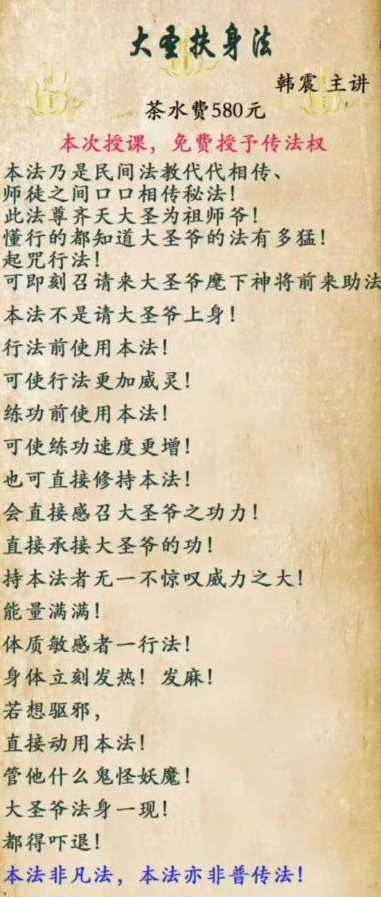 大圣扶身法
韩震 主讲
茶水费580元
本次授课，免费授予传法权
本法乃是民间法教代代相传、
师徒之间口口相传秘法！
此法尊齐天大圣为祖师爷！
懂行的都知道大圣爷的法有多猛！
起咒行法！
可即刻召请来大圣爷麾下神将前来助法
本法不是请大圣爷上身！
行法前使用本法！
可使行法更加威灵！
练功前使用本法！
可使练功速度更增！
也可直接修持本法！
会直接感召大圣爷之功力！
直接承接大圣爷的功！
持本法者无一不惊叹威力之大！
能量满满！
体质敏感者一行法！
身体立刻发热！发麻！
若想驱邪，
直接动用本法！
管他什么鬼怪妖魔！
大圣爷法身一现！
都得吓退！
本法非凡法，本法亦非普传法！